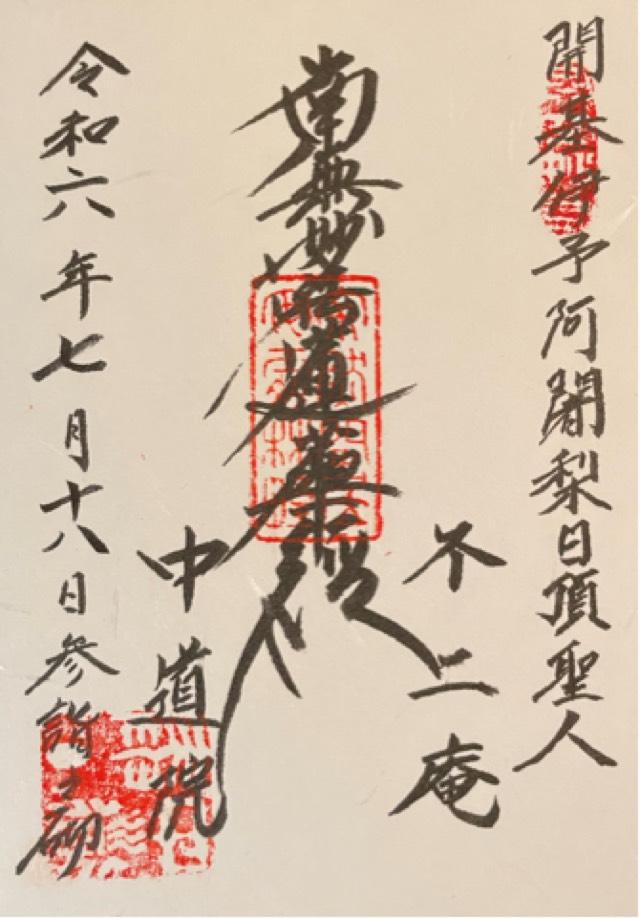 開基伊予阿闍梨日頂聖人
不二庵
南無妙法蓮華経
中道院
令和六年七月十八日参詣之砌